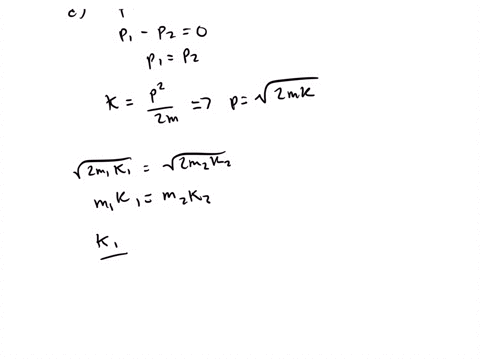 c)
P₁ - P₂ = 0
P₁ = P₂
K = P²/2m => P = √2mK
√2m₁K₁ = √2m₂K₂
m₁K₁ = m₂K₂
K₁